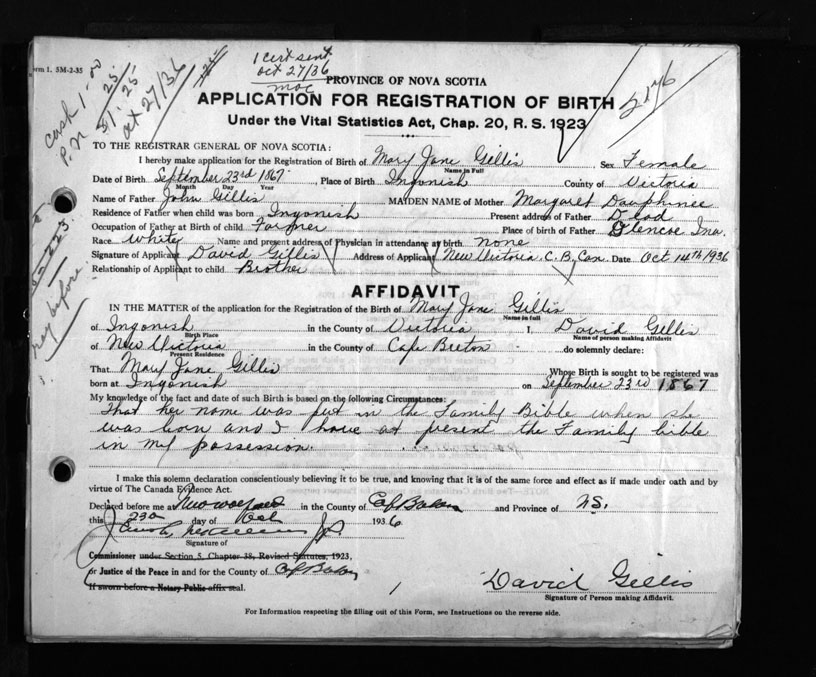 Form 1. 5M-2-35
cash 1.00
P.N .25
$1.25
Oct 27/36
1 cert sent
Oct 27/36
moc
PROVINCE OF NOVA SCOTIA
APPLICATION FOR REGISTRATION OF BIRTH
Under the Vital Statistics Act, Chap. 20, R. S. 1923
TO THE REGISTRAR GENERAL OF NOVA SCOTIA:
I hereby make application for the Registration of Birth of Mary Jane Gillis Sex Female
Name in Full
Date of Birth September 23rd 1867 Place of Birth Ingonish County of Victoria
Month Day Year
Name of Father John Gillis MAIDEN NAME of Mother Margaret Dauphinee
Residence of Father when child was born Ingonish Present address of Father Dead
Occupation of Father at Birth of child Farmer Place of birth of Father Glencoe
Race White Name and present address of Physician in attendance at birth none
Signature of Applicant David Gillis Address of Applicant New Victoria C. B. Can. Date Oct 14th 1936
Relationship of Applicant to child Brother
AFFIDAVIT
IN THE MATTER of the application for the Registration of the Birth of Mary Jane Gillis
Name in full
of Ingonish in the County of Victoria I, David Gillis
Birth Place Name of person making Affidavit
of New Victoria in the County of Cape Breton do solemnly declare:
Present Residence
That Mary Jane Gillis Whose Birth is sought to be registered was
born at Ingonish on September 23rd 1867
My knowledge of the fact and date of such Birth is based on the following Circumstances:
That her name was put in the Family Bible when she
was born and I have at present the Family bible
in my possession.
I make this solemn declaration conscientiously believing it to be true, and knowing that it is of the same force and effect as if made under oath and by
virtue of The Canada Evidence Act.
Declared before me at in the County of and Province of N.S.
this day of Oct 1936
J.P.
Signature of
Commissioner under Section 5, Chapter 38, Revised Statutes, 1923,
or Justice of the Peace in and for the County of
If sworn before a Notary Public affix seal.
David Gillis
Signature of Person making Affidavit.
For Information respecting the filling out of this Form, see Instructions on the reverse side.